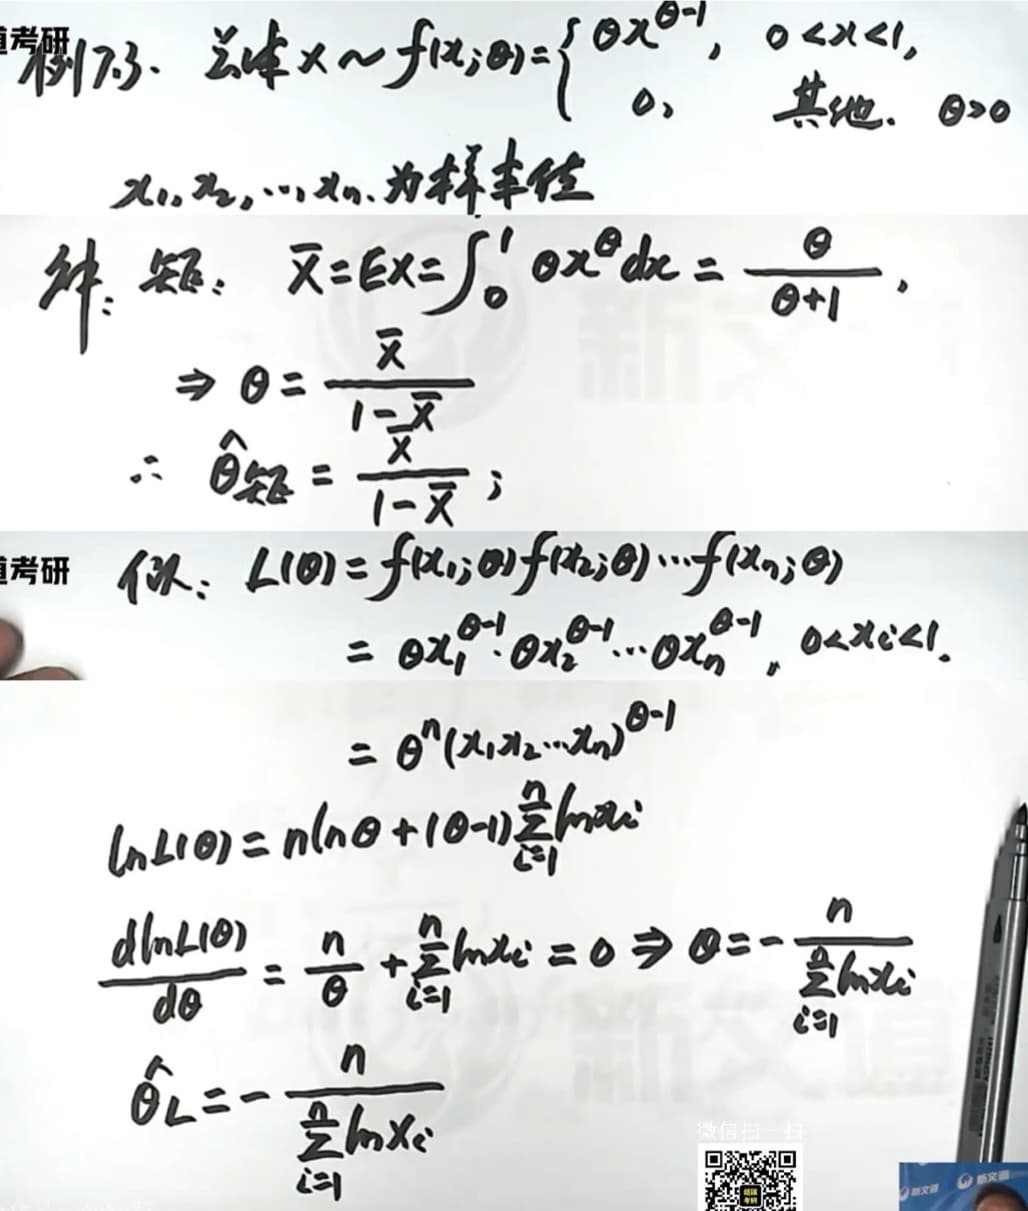 道考研
例7.3. 总体X～f(x;θ)={θx^{θ-1}, 0<x<1,
0, 其他. θ>0
x₁,x₂,…,xₙ.为样本值
解: 矩: X̄=EX=∫₀¹θx^θdx=θ/(θ+1),
⇒θ=X̄/(1-X̄)
∴ θ̂矩=X̄/(1-X̄);
道考研
似: L(θ)=f(x₁;θ)f(x₂;θ)…f(xₙ;θ)
=θx₁^{θ-1}·θx₂^{θ-1}…θxₙ^{θ-1}, 0<xᵢ<1.
=θⁿ(x₁x₂…xₙ)^{θ-1}
lnL(θ)=nlnθ+(θ-1)∑_{i=1}^{n}lnxᵢ
dlnL(θ)/dθ=n/θ+∑_{i=1}^{n}lnxᵢ=0⇒θ=-n/∑_{i=1}^{n}lnxᵢ
θ̂_L=-n/∑_{i=1}^{n}lnXᵢ
新文道
微信扫一扫
新文道 新文道